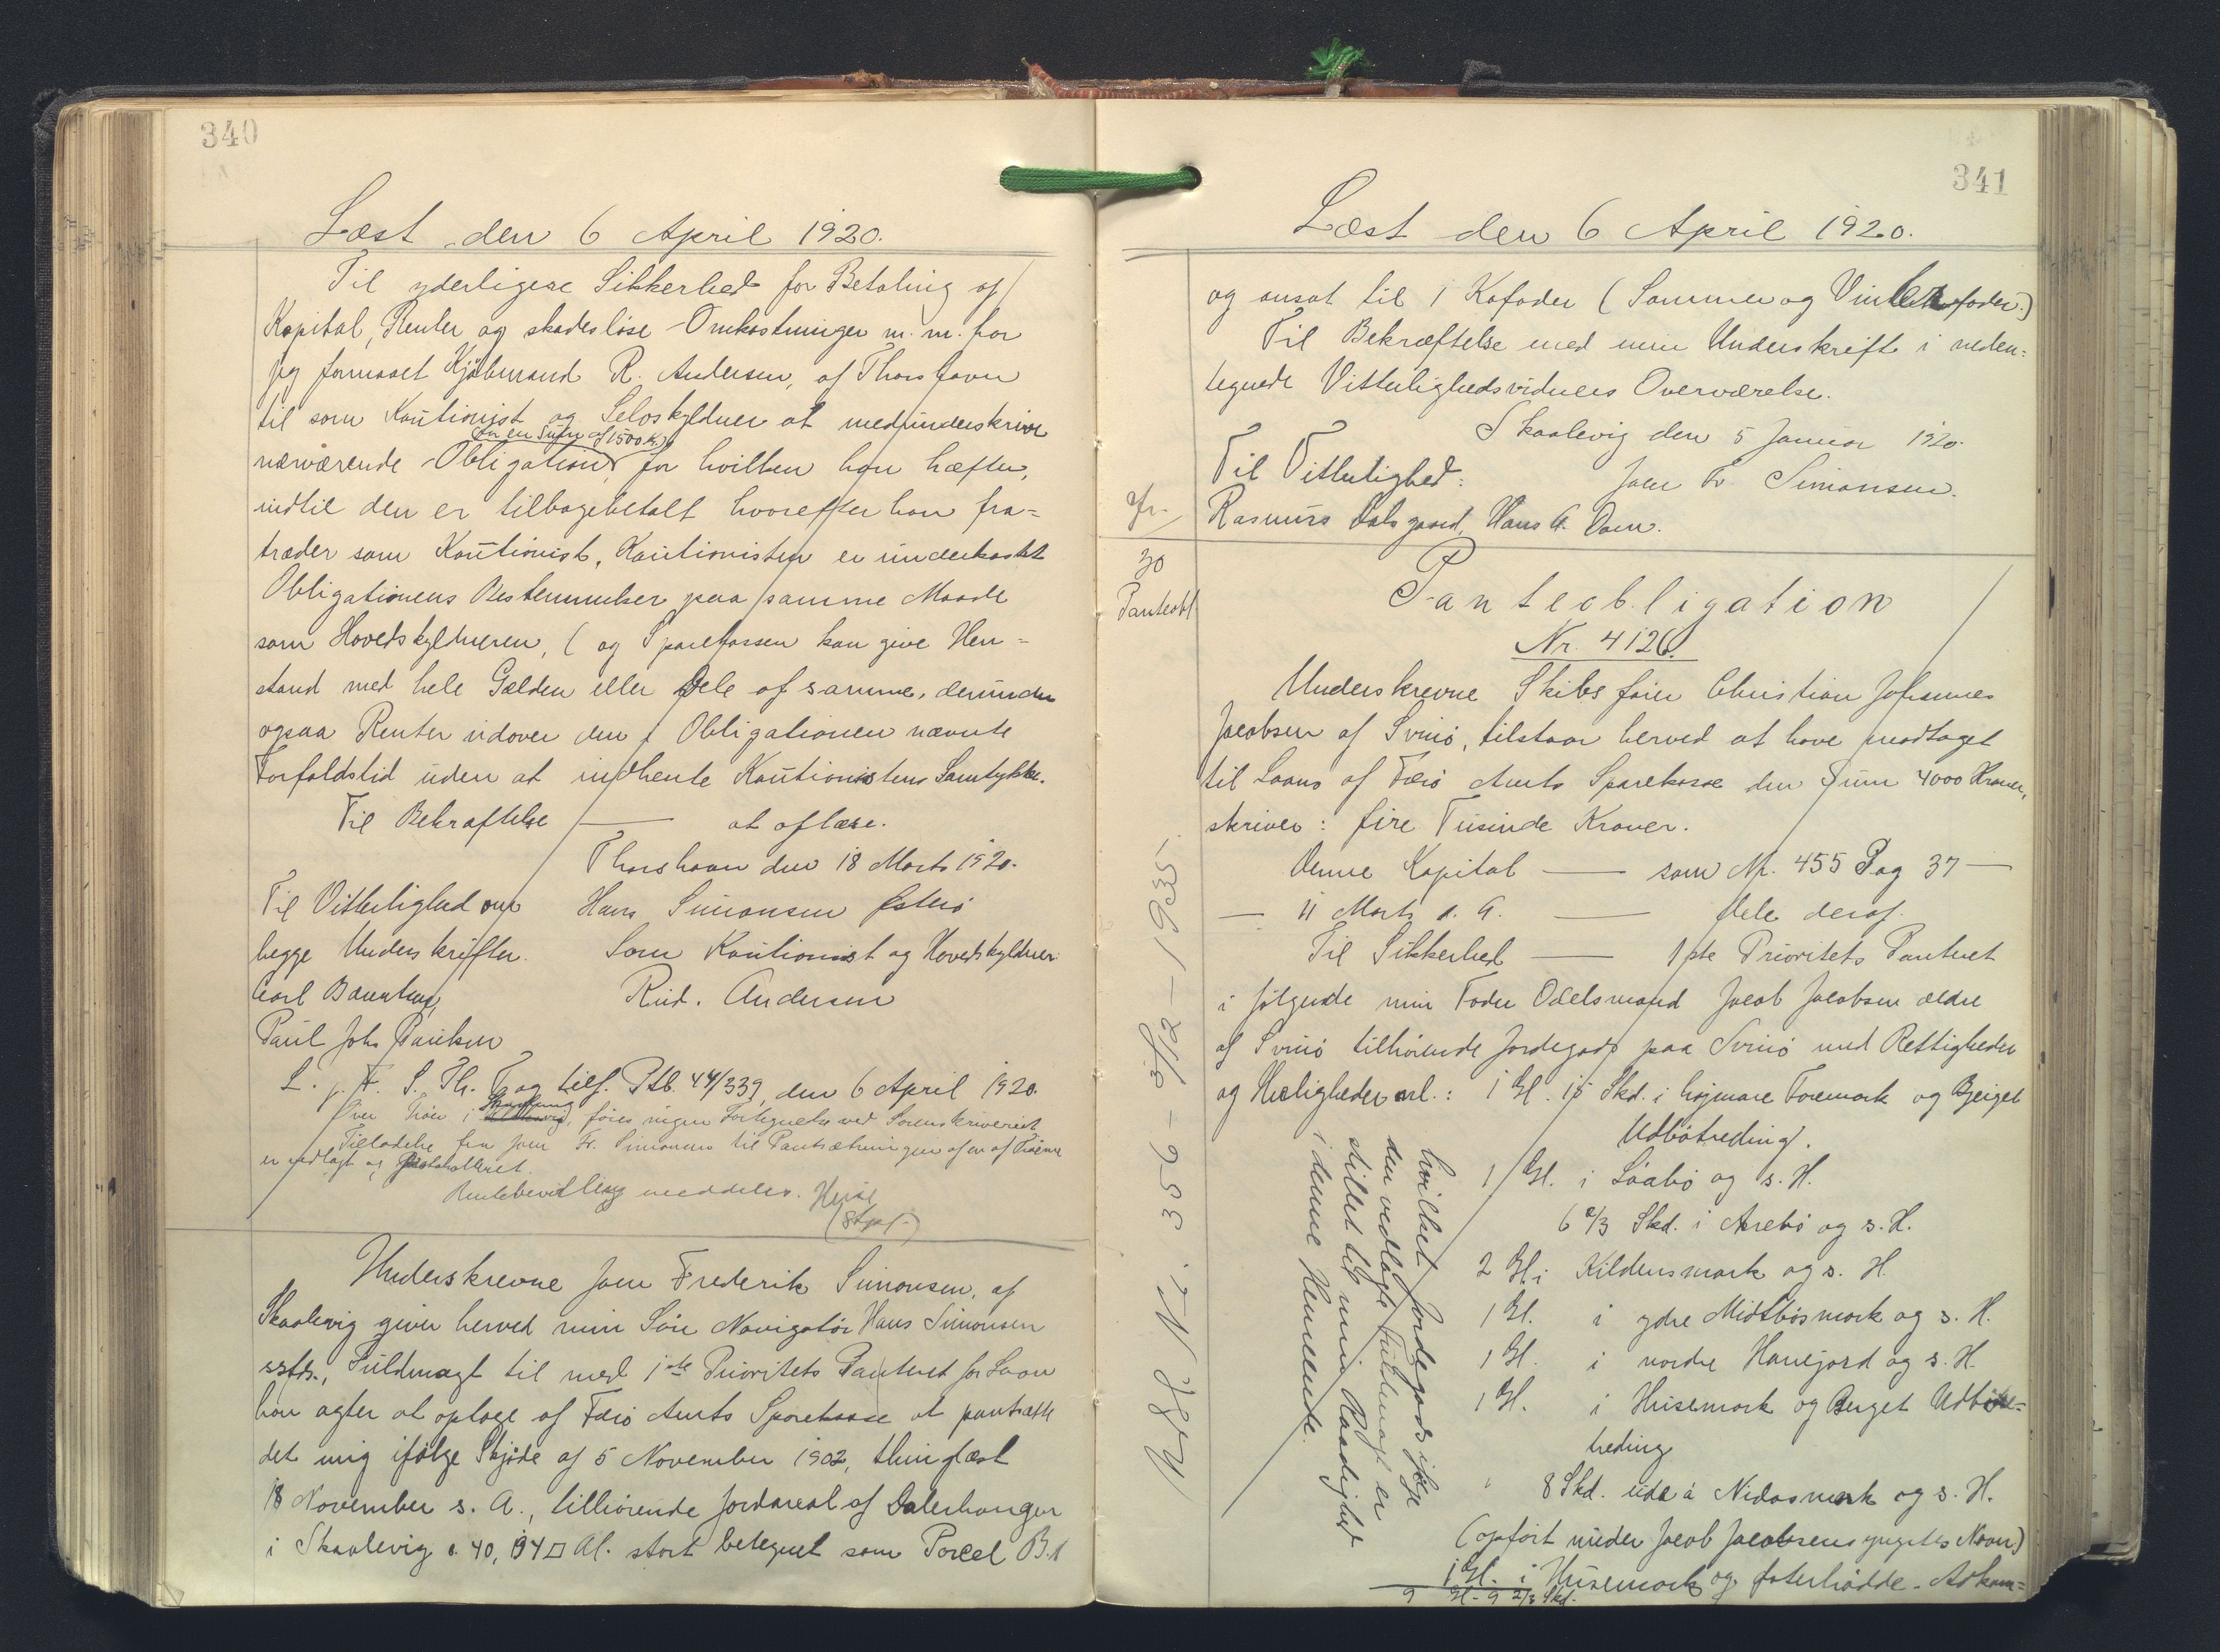 340
Læst den 6 April 1920.
Til yderligere Sikkerhed for Betaling af
Kapital, Renter og skadesløse Omkostninger m.m. har
jeg formaaet Kjøbmand R. Andersen, af Thorshavn
til som Kautionist og Selvskyldner at medunderskrive
(for en Sum af 1500 Kr.)
nærværende Obligation, for hvilken han hæfter,
indtil den er tilbagebetalt hvorefter han fra=
træder som Kautionist. Kautionisten er underkastet
Obligationens Bestemmelser paa samme Maade
som Hovedskyldneren, ( og Sparekassen kan give Hen=
stand med hele Gælden eller Dele af samme, derunder
ogsaa Renter udover den i Obligationen nævnte
Forfaldstid uden at indhente Kautionistens Samtykke.
Til Bekræftelse — at aflæse.
Thorshavn den 18 Marts 1920.
Til Vitterlighed om Hans Simonsen Østerø
begge Underskrifter. Som Kautionist og Hovedskyldner
Carl
Rud. Andersen
Paul Johs Paulsen
L. p. F. S. Th. T og tilf. Ptb. 44/339, den 6 April 1920.
Over Huse i føres ingen Fortegnelse ved Sorenskriveriet
Tilladelse fra Joen Fr. Simonsen til Pantsætningen af
er vedlagt og protokolleret.
Rentebevilling meddeles.
Underskrevne Joen Frederik Simonsen, af
Skaalevig giver herved min Søn Navigatør Hans Simonsen
sstds., Fuldmagt til med 1ste Prioritets Panteret for Laan
han agter at optage af Færø Amts Sparekasse at pantsætte
det mig ifølge Skjøde af 5 November 1902, thinglæst
18 November s. A., tilhørende Jordareal af Dalerhanger
i Skaalevig c. 40,194 □ Al. stort betegnet som Parcel B.1
341
Læst den 6 April 1920.
og ansat til 1 Kofoder (Sommer og Vinterfoder.)
Til Bekræftelse med min Underskrift i neden=
tegnede Vitterlighedsvidners Overværelse.
Skaalevig den 5 Januar 1920.
Til Vitterlighed: Joen Fr. Simonsen.
Rasmus Dalsgaard, Hans A. Dam.
30
Panteobl
Panteobligation
Nr. 4126.
Underskrevne Skibsfører Christian Johannes
Jacobsen af Svinø, tilstaar herved at have modtaget
til Laans af Færø Amts Sparekasse den Sum 4000 Kroner,
skriver: fire Tusinde Kroner.
Denne Kapital — som Nr. 455 Pag 37 —
— 11 Marts d. A. — Dele deraf.
Til Sikkerhed — 1ste Prioritets Panteret
i følgende min Fader Odelsmand Jacob Jacobsen ældre
af Svinø tilhørende Jordegods paa Svinø med Rettigheder
og Herligheder nl.: 1 Gl. 15 Skd. i højmare Foremark og Bjerget
Udbøtreding.
1 Gl. i Løabø og s. H.
6 2/3 Skd. i Arebø og s. H.
2 Gl. i Kildensmark og s. H.
1 Gl. i ydre Midtbøsmark og s. H.
1 Gl. i nordre Hanejord og s. H.
1 Gl. i Husemark og Berget Udbø=
treding
" 8 Skd. ude à Nidasmark og s. H.
(opført under Jacob Jacobsens yngstes Navn)
1 Gl. i Husemark og Adkom=
9 Gl. 9 2/3 Skd.
hvilket Jordegods ifølge
den vedlagte Fuldmagt er
stillet til min Raadighed
i denne Henseende.
Ref. N. 356 - 3/12 - 1935.